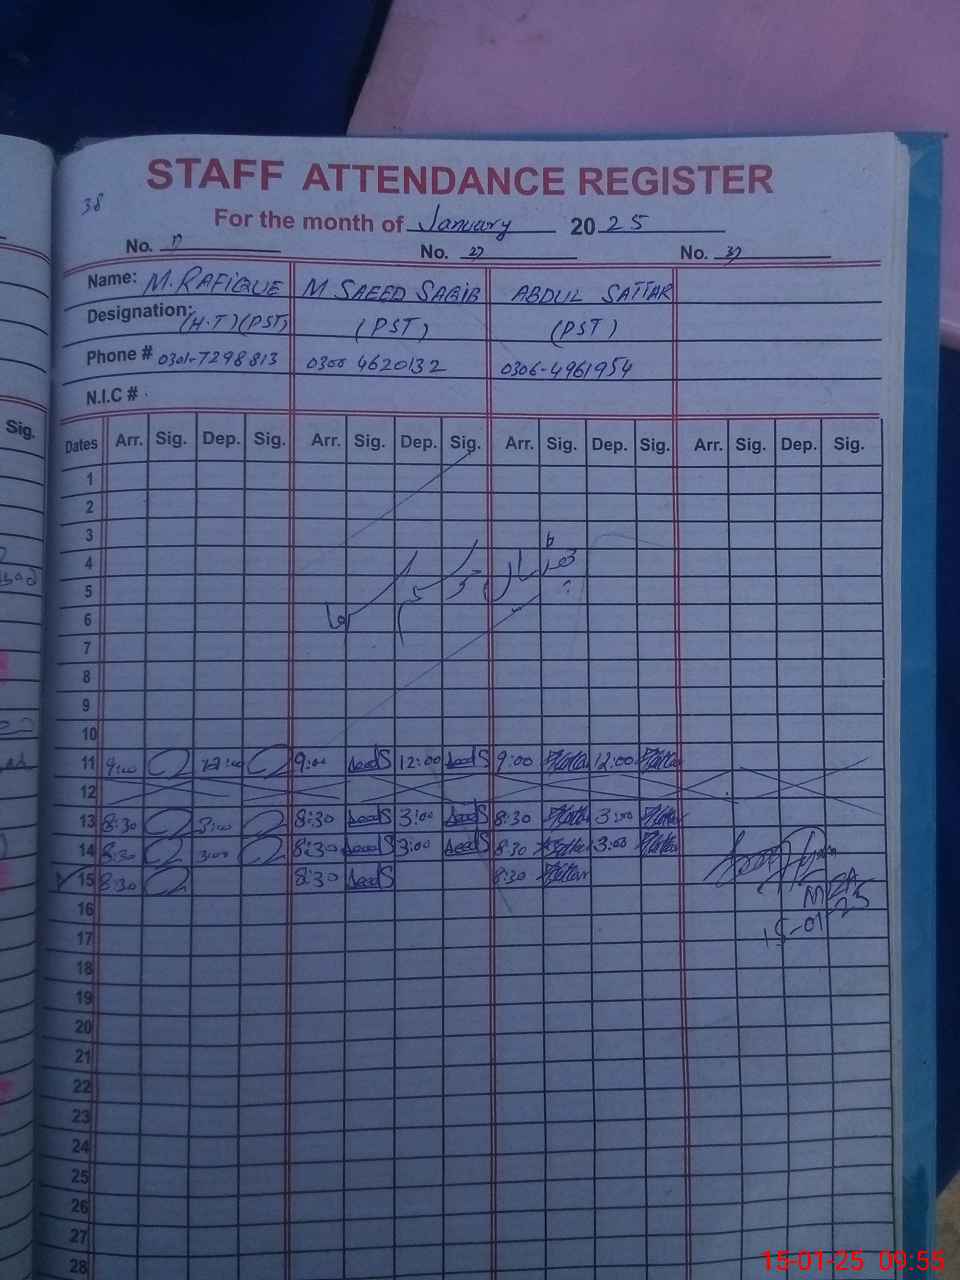 STAFF ATTENDANCE REGISTER
38
For the month of January 2025
No. 1) No. 2) No. 3)
Name: M. RAFIQUE M SAEED SAQIB ABDUL SATTAR
Designation: (H.T)(PST) (PST) (PST)
Phone # 0301-7298813 0300 4620132 0306-4961954
N.I.C #
Sig.
Dates Arr. Sig. Dep. Sig. Arr. Sig. Dep. Sig. Arr. Sig. Dep. Sig. Arr. Sig. Dep. Sig.
1
2
3
4
5
6
7
8
9
10
11 9:00 12:00 9:00 12:00 9:00 12:00
12
13 8:30 3:00 8:30 3:00 8:30 3:00
14 8:30 3:00 8:30 3:00 8:30 3:00
15 8:30 8:30 8:30
16
15-01-25
17
18
19
20
21
22
23
24
25
26
27
28
15-01-25 09:55